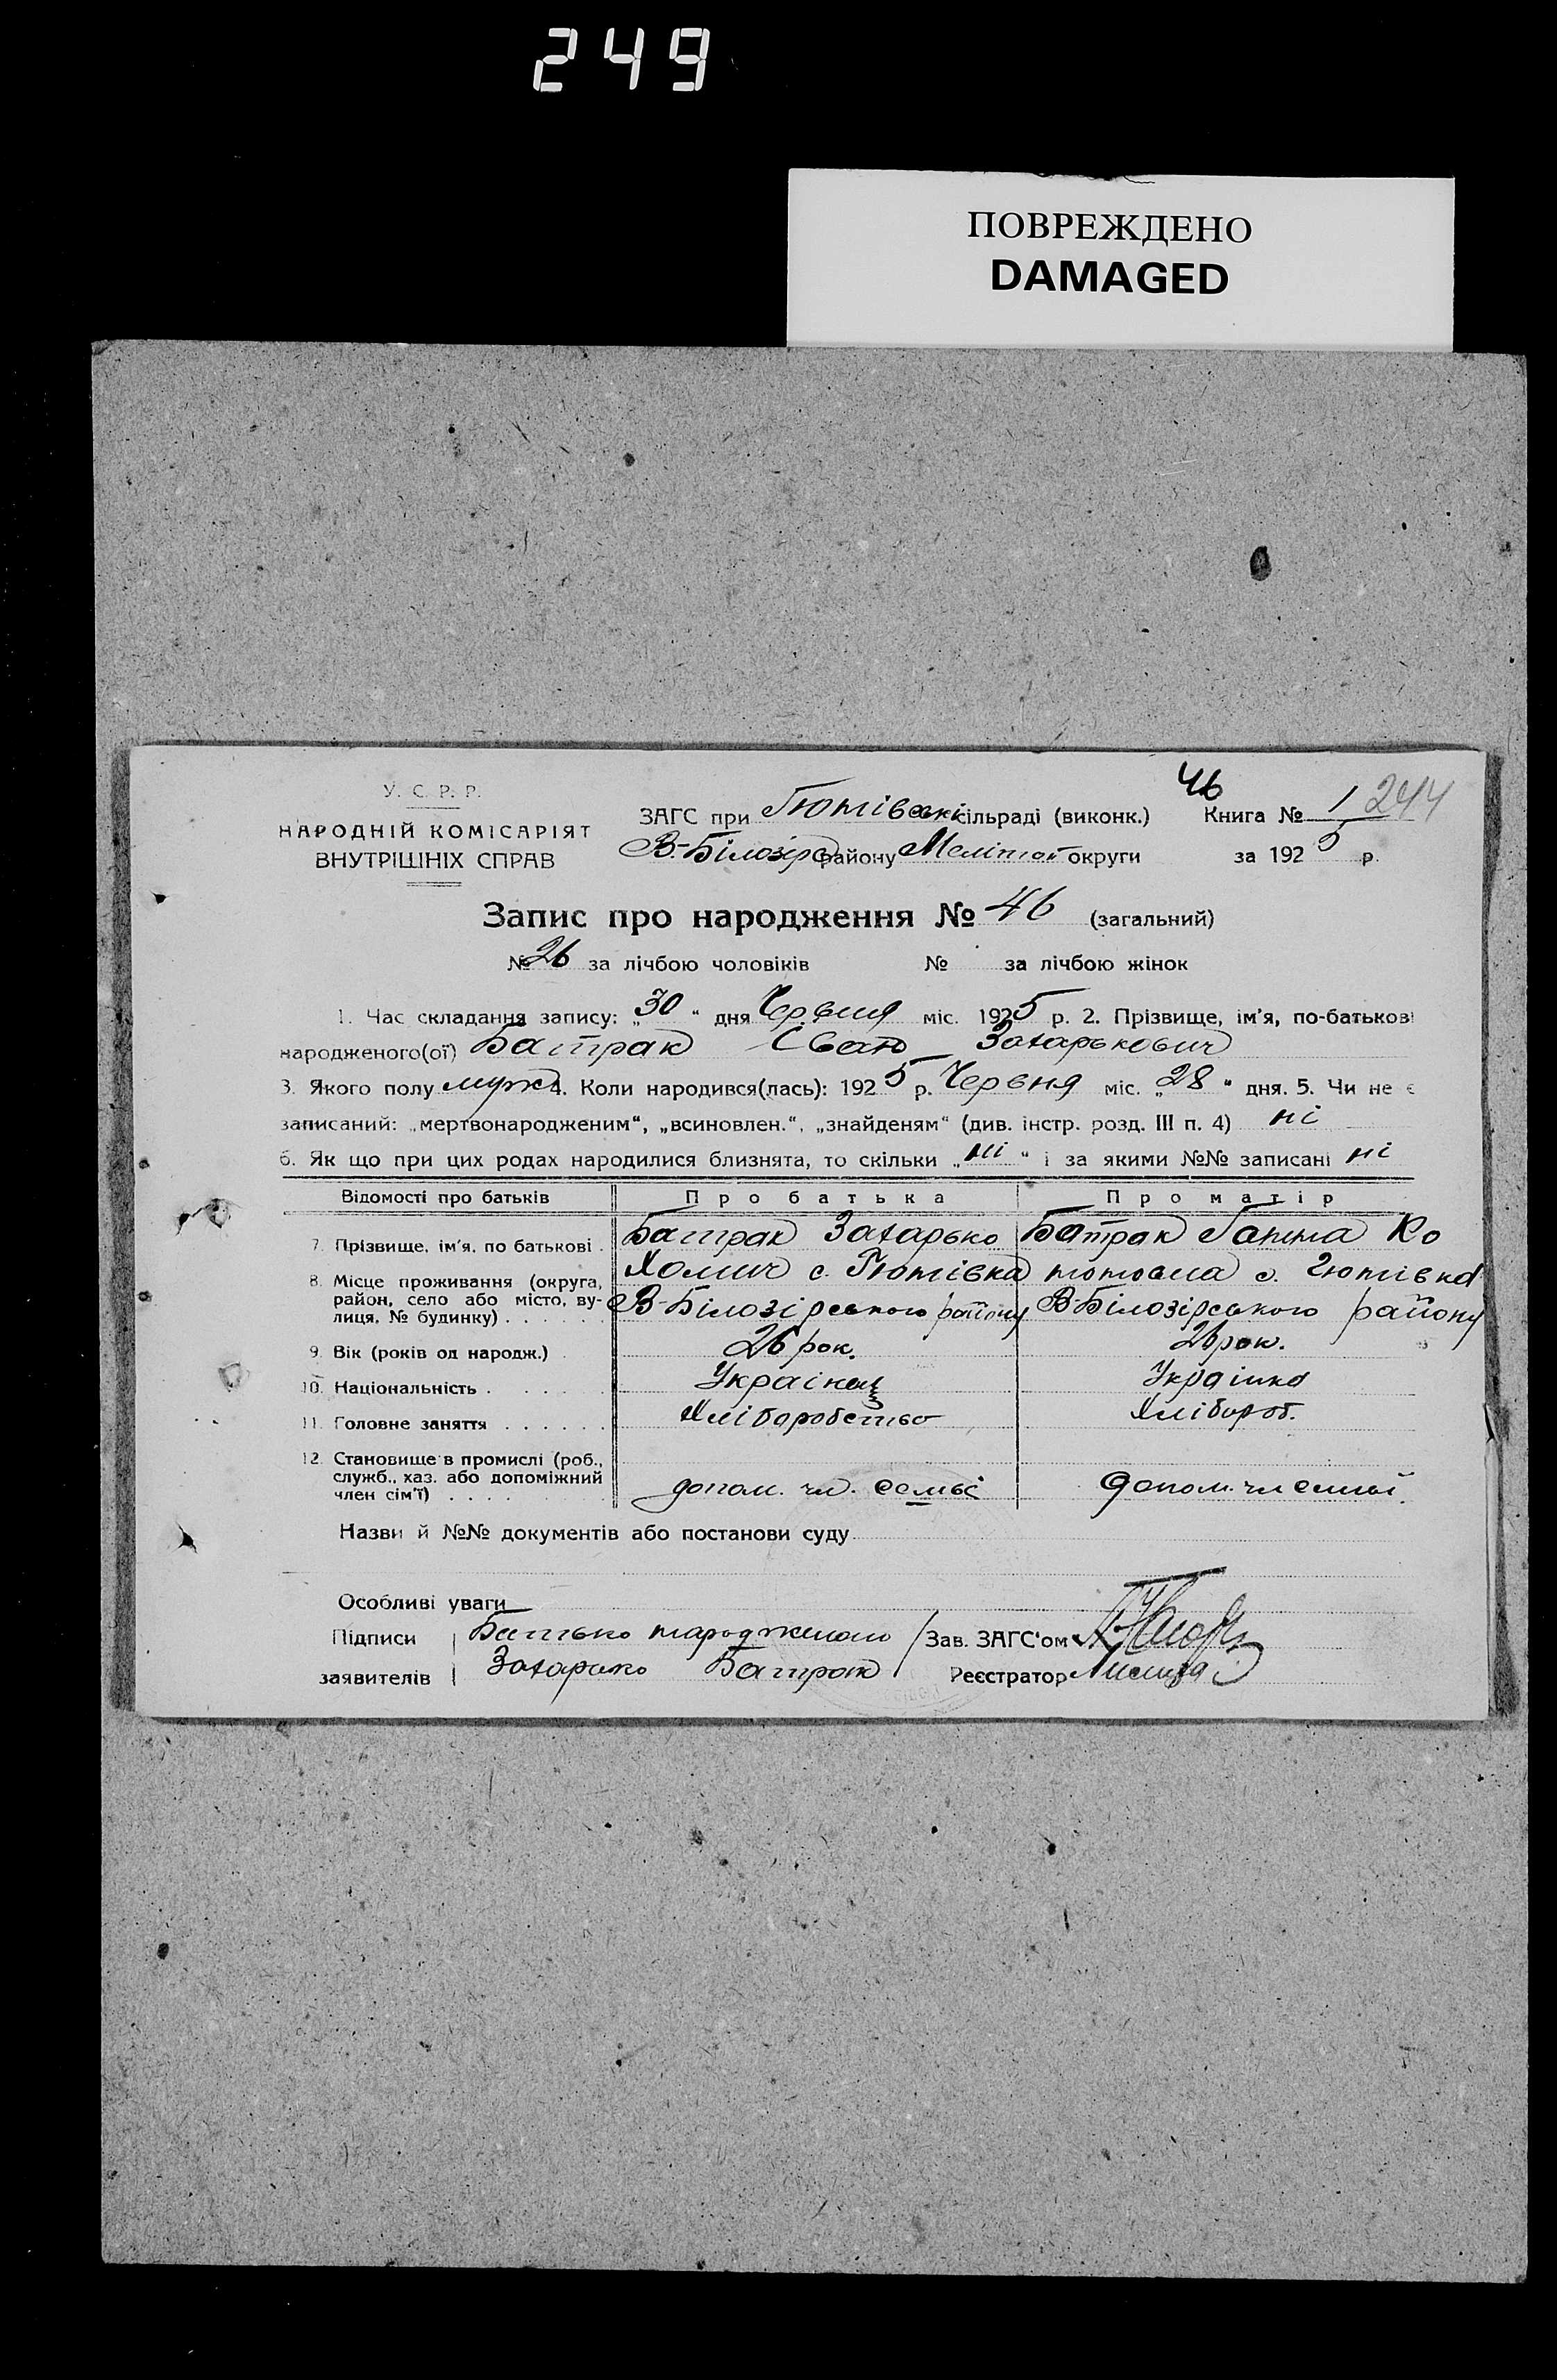 249
ПОВРЕЖДЕНО
DAMAGED
У. С. Р. Р.
НАРОДНІЙ КОМІСАРІЯТ
ВНУТРІШНІХ СПРАВ
46
ЗАГС при Гютівській сільраді (виконк.) Книга № 1 244
В-Білозір району Меліт округи за 1925 р.
Запис про народження № 46 (загальний)
№ 26 за лічбою чоловіків № за лічбою жінок
1. Час складання запису: „30“ дня Червня міс. 1925 р. 2. Прізвище, ім'я, по-батькові
народженого(ої) Батрак Захарькович
3. Якого полу муж 4. Коли народився(лась): 1925 р. Червня міс. „28“ дня. 5. Чи не є
записаний: „мертвонародженим“, „всиновлен.“, „знайденям“ (див. інстр. розд. III п. 4) ні
6. Як що при цих родах народилися близнята, то скільки „ні“ і за якими №№ записані ні
Відомості про батьків Про батька Про матір
7. Прізвище, ім'я, по батькові . Батрак Захарько Батрак Ганна Ко
8. Місце проживання (округа, район, село або місто, вулиця, № будинку) . . . . . Хомич с. Гютівка с. Гютівка
В-Білозірського району В-Білозірського району
9. Вік (років од народж.) 26 рок. 26 рок.
10. Національність . . . . Українец Українка
11. Головне заняття . . . . . . Хліборобство Хлібороб.
12. Становище в промислі (роб., служб., хаз. або допоміжний член сім'ї) . . . . допом. чл. семьї допом. чл семьї
Назви й №№ документів або постанови суду
Особливі уваги
Підписи Батько народженого Зав. ЗАГС'ом
заявителів Захарько Батрак Реєстратор